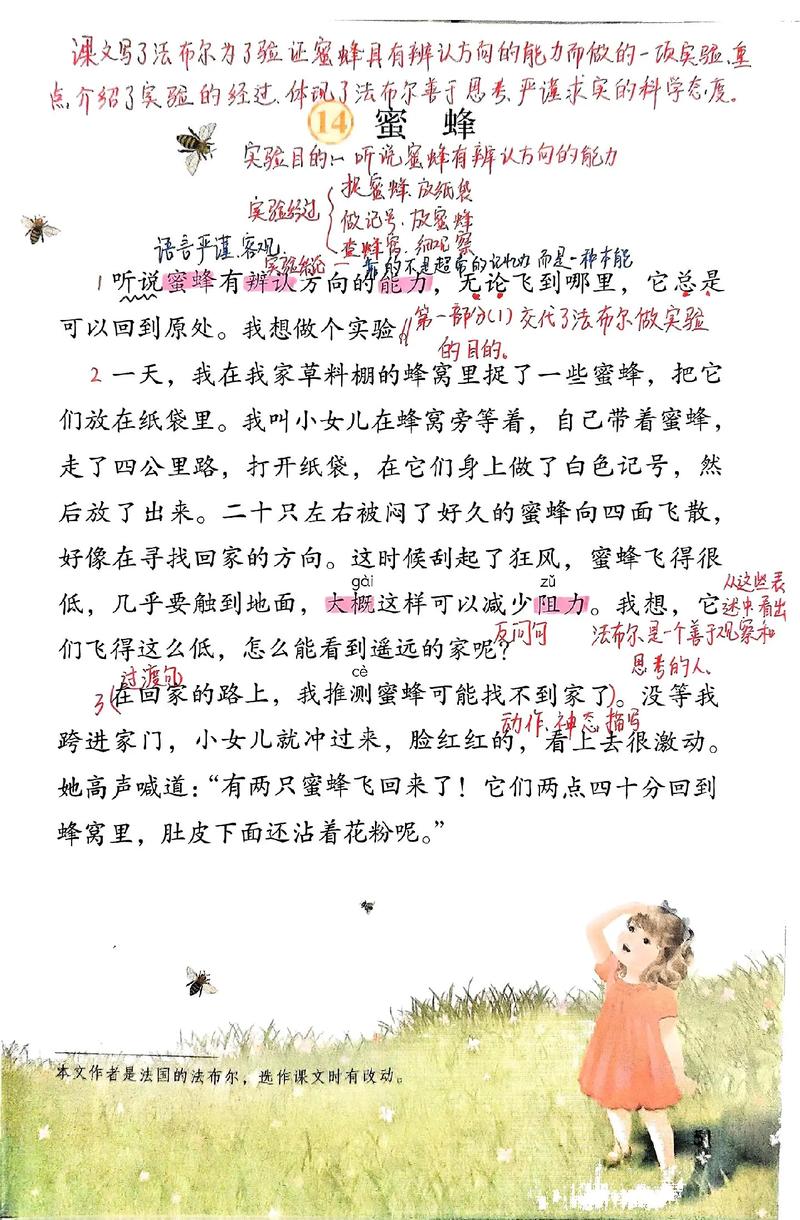 课文写了法布尔为了验证蜜蜂具有辨认方向的能力而做的一项实验,重
点介绍了实验的经过,体现了法布尔善于思考、严谨求实的科学态度。
14 蜜 蜂
实验目的:听说蜜蜂有辨认方向的能力
实验经过
捉蜜蜂.放纸袋
做记号.放蜜蜂
查蜂窝.细观察
语言严谨、客观、
实验结论
靠的不是超常的记忆力而是一种本能
1 听说蜜蜂有辨认方向的能力，无论飞到哪里，它总是
可以回到原处。我想做个实验。
第一部分(1)交代了法布尔做实验
的目的。
2 一天，我在我家草料棚的蜂窝里捉了一些蜜蜂，把它
们放在纸袋里。我叫小女儿在蜂窝旁等着，自己带着蜜蜂，
走了四公里路，打开纸袋，在它们身上做了白色记号，然
后放了出来。二十只左右被闷了好久的蜜蜂向四面飞散，
好像在寻找回家的方向。这时候刮起了狂风，蜜蜂飞得很
gài zǔ
低，几乎要触到地面，大概这样可以减少阻力。我想，它
从这些表
述中看出
法布尔是一个善于观察和
思考的人.
反问句
们飞得这么低，怎么能看到遥远的家呢？
过渡句
cè
3(在回家的路上，我推测蜜蜂可能找不到家了)。没等我
动作、神态描写
跨进家门，小女儿就冲过来，脸红红的，看上去很激动。
她高声喊道：“有两只蜜蜂飞回来了！它们两点四十分回到
蜂窝里，肚皮下面还沾着花粉呢。”
本文作者是法国的法布尔，选作课文时有改动。